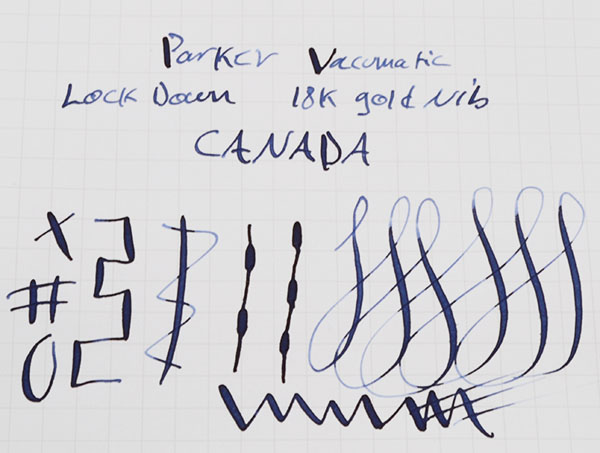 Parker Vacumatic
Lock Down 18K gold Nib
CANADA
X
#
O